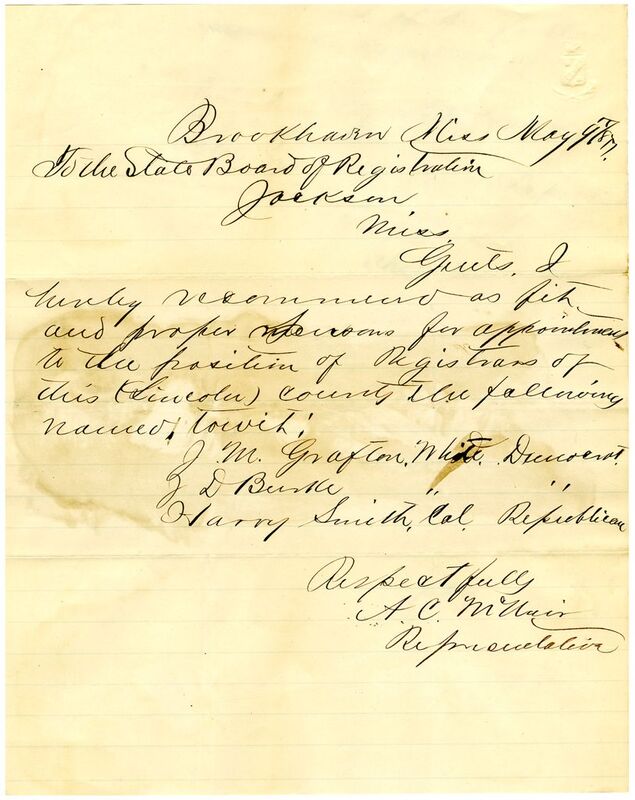 Brookhaven Miss May 9th 1877.
To the State Board of Registration
Jackson
Miss.
Gents, I
hereby recommend as fit
and proper persons for appointment
to the position of Registrars of
this (Lincoln) county the following
named, towit:
J. M. Grafton, White, Democrat.
Z D Burke " "
Harry Smith, Col. Republican
Respectfully
A. C. McNair
Representative